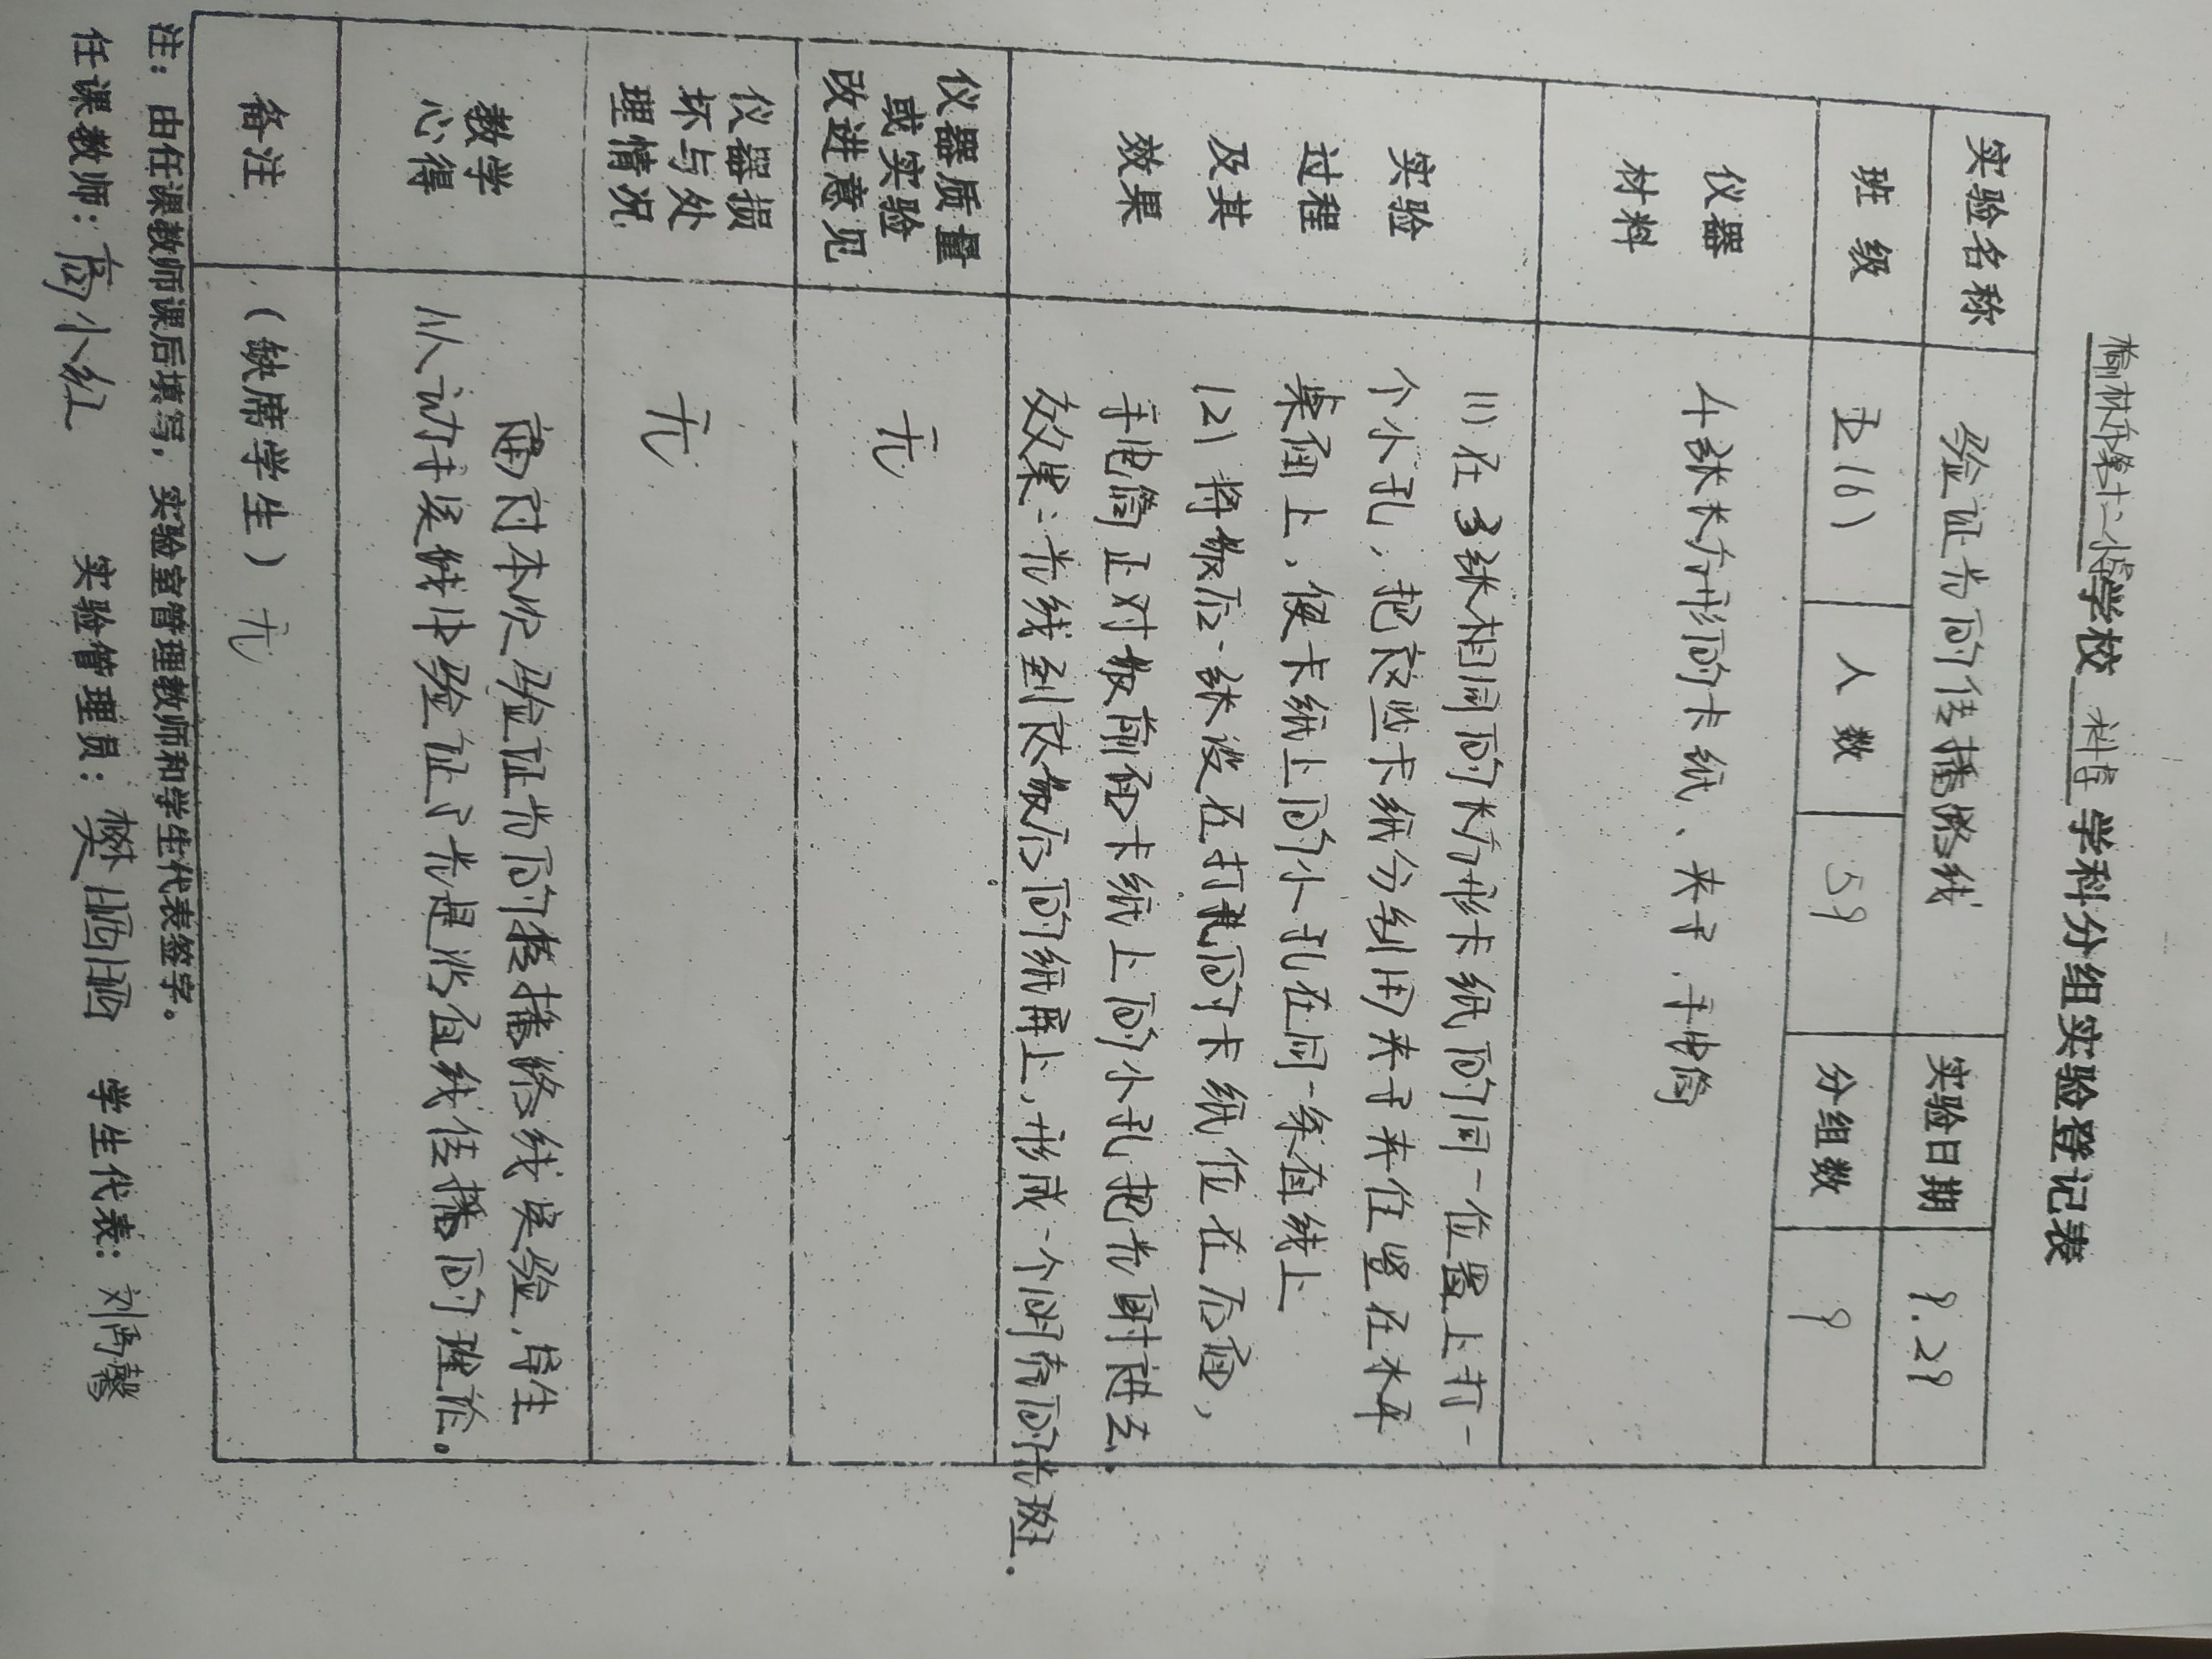 榆林市第十二小学学校 科学 学科分组实验登记表
实验名称 验证光的传播路线 实验日期 9.29
班级 五(6) 人数 59 分组数 9
仪器材料 4张长方形的卡纸、夹子、手电筒
实验过程及其效果
(1) 在3张相同的长方形卡纸的同一位置上打一
个小孔，把这些卡纸分别用夹子夹住竖在水平
桌面上，使卡纸上的小孔在同一条直线上
(2) 将最后一张没在打孔的卡纸位在后面，
手电筒正对最前面卡纸上的小孔把光射进去.
效果：光线到达最后的纸屏上，形成一个明亮的光斑.
仪器质量或实验改进意见 无
仪器损坏与处理情况 无
教学心得
面对本次验证光的传播路线实验，学生
从动手实践中验证了光是沿直线传播的理论。
备注 (缺席学生) 无
注：由任课教师课后填写，实验室管理教师和学生代表签字。
任课教师：高小红 实验管理员：樊 学生代表：刘